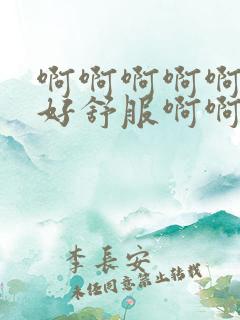 啊啊啊啊啊
好舒服啊啊
李長安
未经同意禁止转载